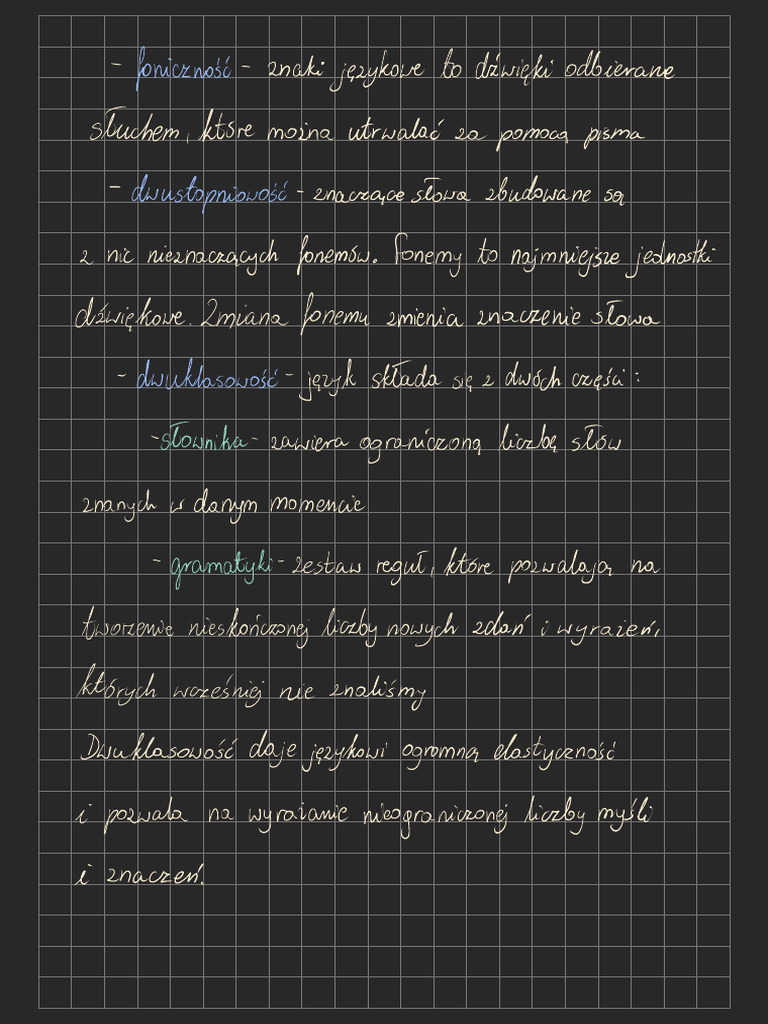 - foniczność - znaki językowe to dźwięki odbierane
słuchem, które można utrwalać za pomocą pisma
- dwustopniowość - znaczące słowa zbudowane są
z nic nieznaczących fonemów. Fonemy to najmniejsze jednostki
dźwiękowe. Zmiana fonemu zmienia znaczenie słowa
- dwuklasowość - język składa się z dwóch części:
- słownika - zawiera ograniczoną liczbę słów
znanych w danym momencie
- gramatyki - zestaw reguł, które pozwalają na
tworzenie nieskończonej liczby nowych zdań i wyrażeń,
których wcześniej nie znaliśmy
Dwuklasowość daje językowi ogromną elastyczność
i pozwala na wyrażanie nieograniczonej liczby myśli
i znaczeń.